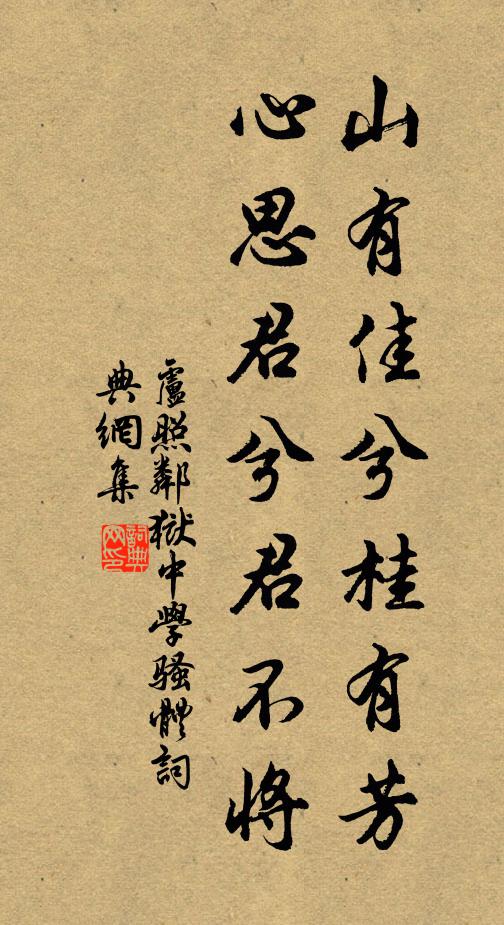 山有佳兮桂有芳
心思君兮君不將
盧照鄰獄中學騷體詞
典網集
詞典
网印